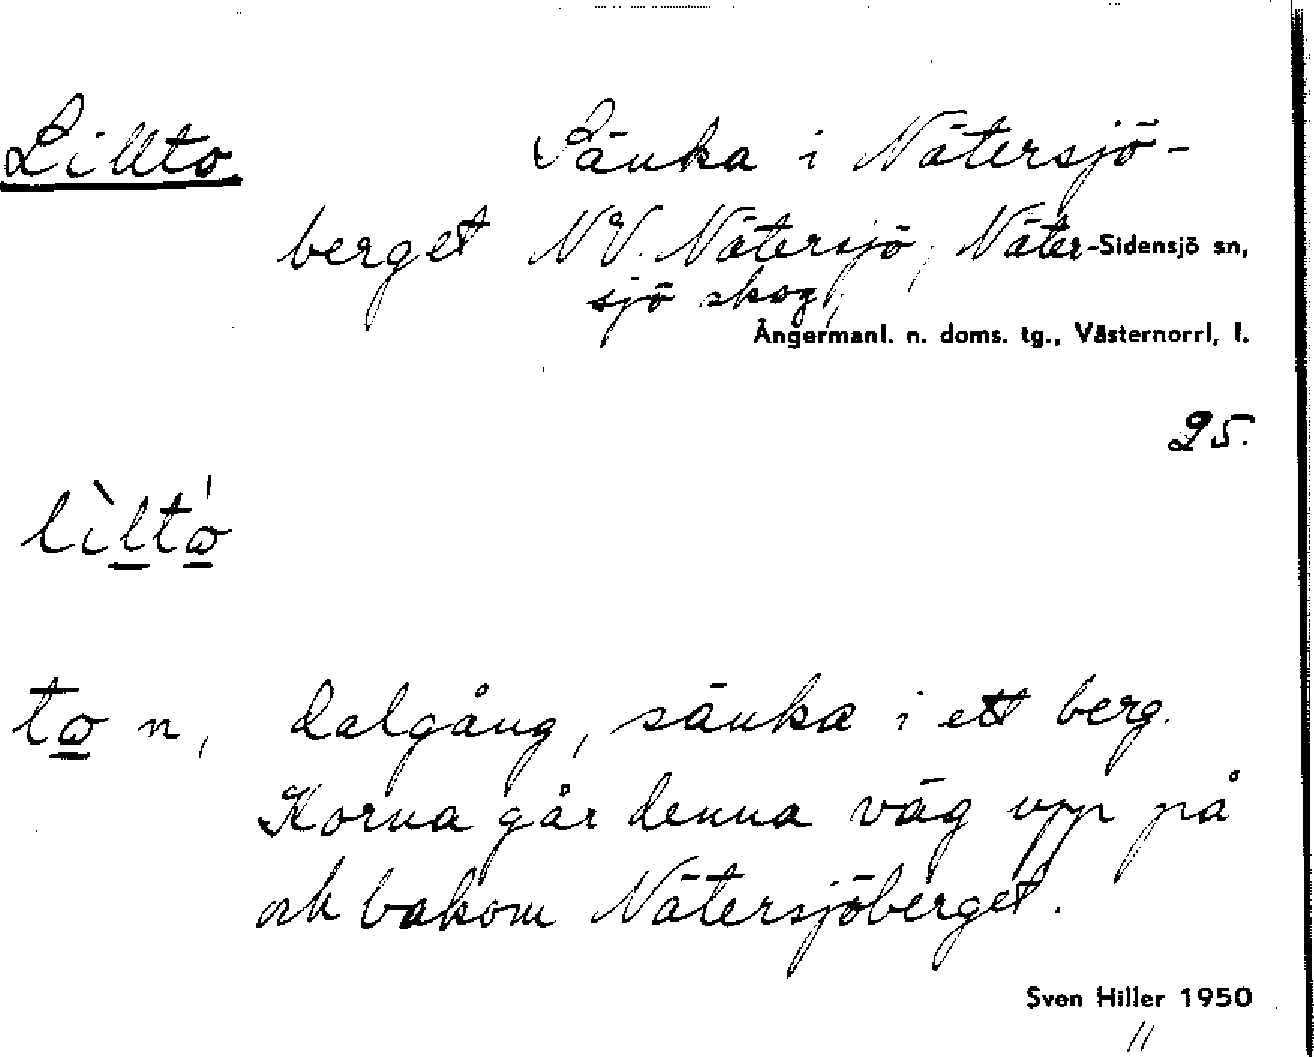 Lillto Sänka i Nätersjö-
berget NV. Nätersjö, Näter-Sidensjö sn,
sjö skog,
Ångermanl. n. doms. tg., Västernorrl, l.
25.
lìltó
to n, dalgång, sänka i ett berg.
Korna går denna väg upp på
och bakom Nätersjöberget.
Sven Hiller 1950